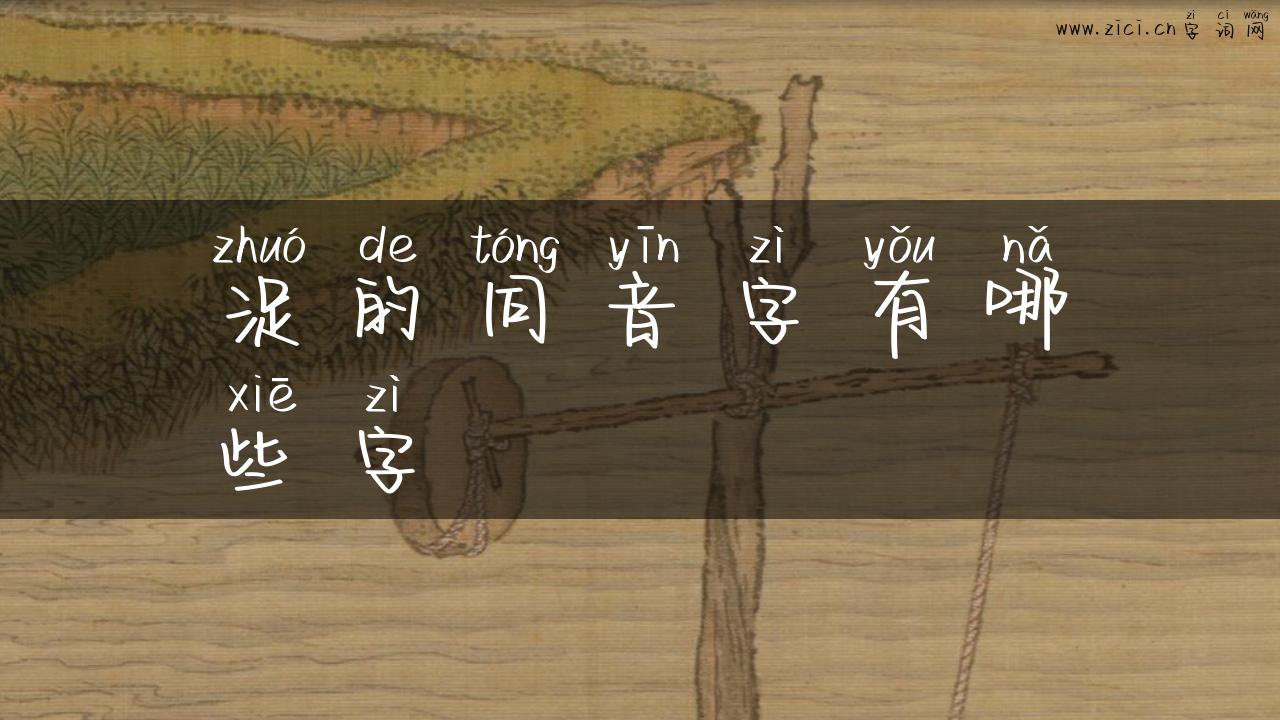 zì cí wǎng
www.zici.cn 字词网
zhuó de tóng yīn zì yǒu nǎ
浞的同音字有哪
xiē zì
些字